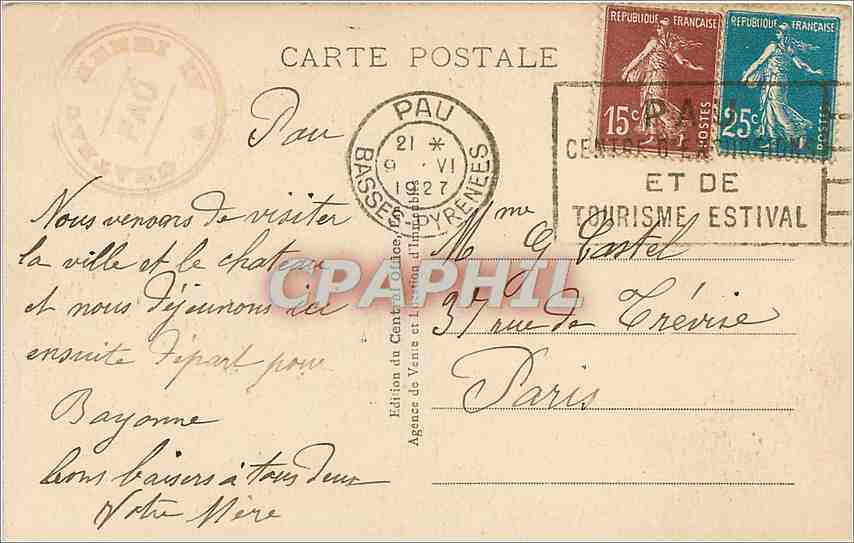 CARTE POSTALE
HENRI IV
PAU
REPUBLIQUE FRANÇAISE
15c
POSTES
REPUBLIQUE FRANÇAISE
25c
POSTES
PAU
21 *
9 · VI
1927
BASSES-PYRENEES
PAU
CENTRE D'EXCURSIONS
ET DE
TOURISME ESTIVAL
Pau
Nous venons de visiter
la ville et le chateau
et nous déjeunons ici
ensuite départ pour
Bayonne
bons baisers à tous deux
Votre Mère
Edition du Central Office, Pau
Agence de Vente et Location d'Immeubles
Mme G Castel
37 rue de Trévise
Paris
CPAPHIL